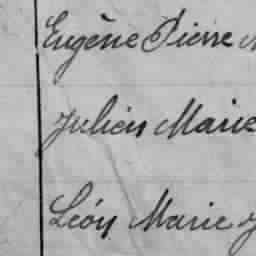 Eugène Pierre
Julien Marie
Léon Marie